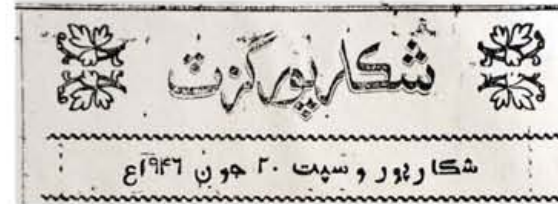 شڪارپور گزٽ
شڪارپور وسپت ۲۰ جون ۱۹۴۶ع